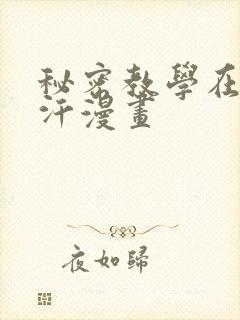 秘密教學在
汗漫畫
夜如歸